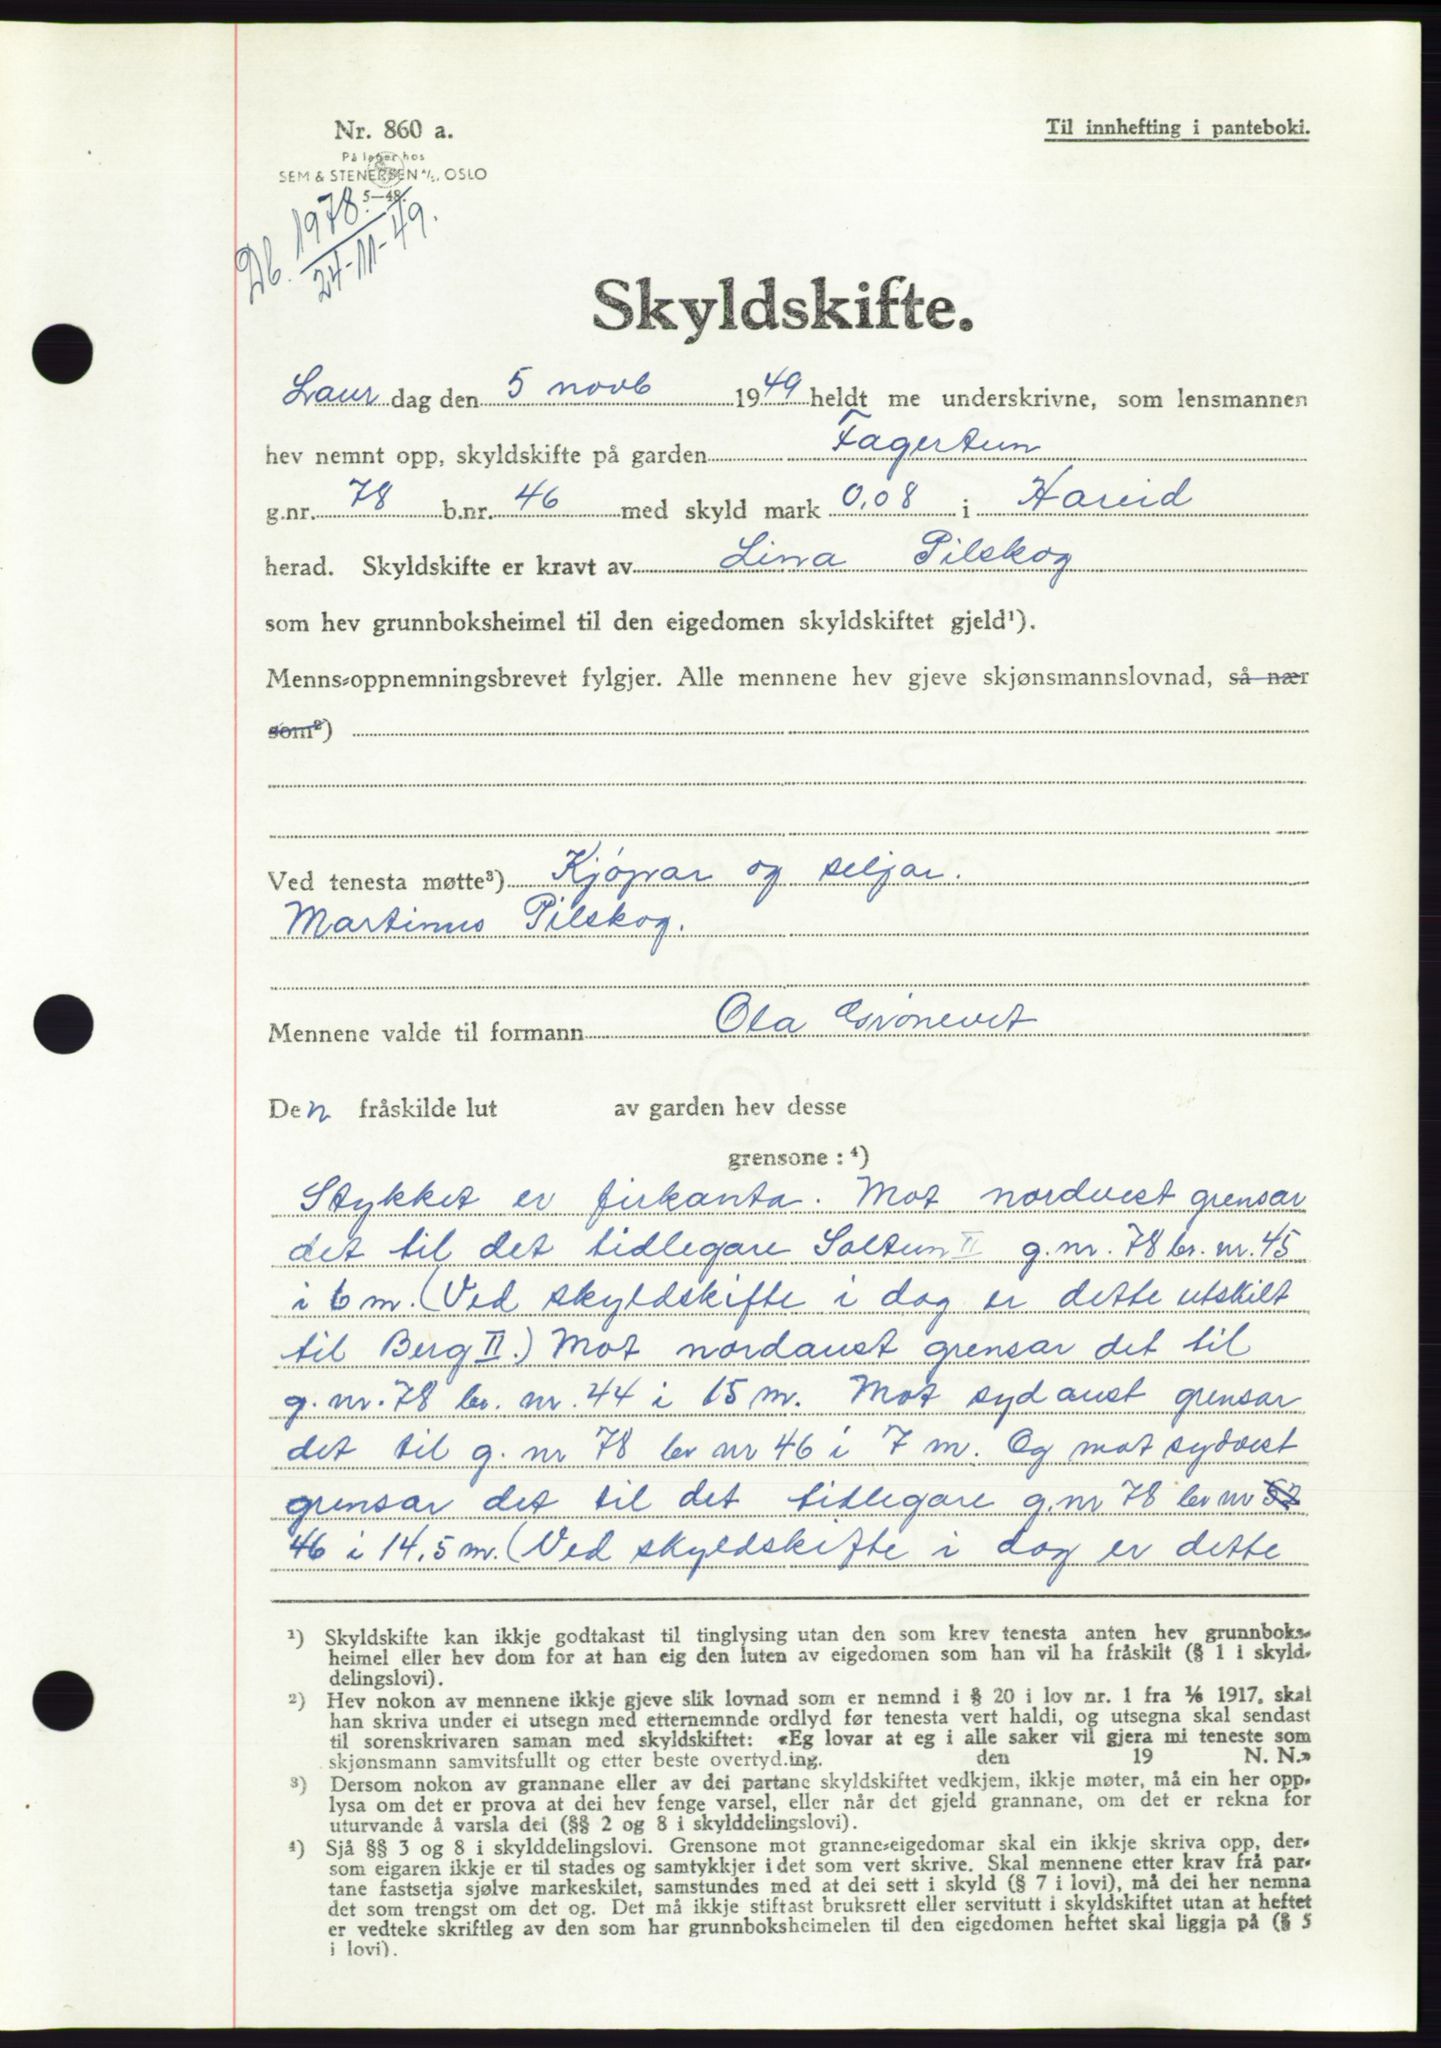 Nr. 860 a.
På lager hos
SEM & STENERSEN A/S, OSLO
5—48.
Til innhefting i panteboki.
Db. 1978.
24-11-49.
Skyldskifte.
Laur dag den 5 novb 1949 heldt me underskrivne, som lensmannen
hev nemnt opp, skyldskifte på garden Fagertun
g.nr. 78 b.nr. 46 med skyld mark 0,08 i Hareid
herad. Skyldskifte er kravt av Lina Pilskog
som hev grunnboksheimel til den eigedomen skyldskiftet gjeld¹).
Menns-oppnemningsbrevet fylgjer. Alle mennene hev gjeve skjønsmannslovnad, så nær
som²)
Ved tenesta møtte³) Kjøpar og seljar.
Martinus Pilskog.
Mennene valde til formann Ola Grønevet
Den fråskilde lut av garden hev desse
grensone : ⁴)
Stykket er firkanta. Mot nordvest grensar
det til det tidlegare Soltun II g.nr. 78 br. nr. 45
i 6 m. (Ved skyldskifte i dag er dette utskilt
til Berg II.) Mot nordaust grensar det til
g. nr. 78 br. nr. 44 i 15 m. Mot sydaust grensar
det til g. nr 78 br nr 46 i 7 m. Og mot sydvest
grensar det til det tidlegare g.nr 78 br nr 52
46 i 14,5 m. (Ved skyldskifte i dag er dette
¹) Skyldskifte kan ikkje godtakast til tinglysing utan den som krev tenesta anten hev grunnboks-
heimel eller hev dom for at han eig den luten av eigedomen som han vil ha fråskilt (§ 1 i skyld-
delingslovi).
²) Hev nokon av mennene ikkje gjeve slik lovnad som er nemnd i § 20 i lov nr. 1 fra ⅙ 1917, skal
han skriva under ei utsegn med etternemnde ordlyd før tenesta vert haldi, og utsegna skal sendast
til sorenskrivaren saman med skyldskiftet: «Eg lovar at eg i alle saker vil gjera mi teneste som
skjønsmann samvitsfullt og etter beste overtyd.ing. den 19 N. N.»
³) Dersom nokon av grannane eller av dei partane skyldskiftet vedkjem, ikkje møter, må ein her opp-
lysa om det er prova at dei hev fenge varsel, eller når det gjeld grannane, om det er rekna for
uturvande å varsla dei (§§ 2 og 8 i skylddelingslovi).
⁴) Sjå §§ 3 og 8 i skylddelingslovi. Grensone mot granne-eigedomar skal ein ikkje skriva opp, der-
som eigaren ikkje er til stades og samtykkjer i det som vert skrive. Skal mennene etter krav frå par-
tane fastsetja sjølve markeskilet, samstundes med at dei sett i skyld (§ 7 i lovi), må dei her nemna
det som trengst om det og. Det må ikkje stiftast bruksrett eller servitutt i skyldskiftet utan at heftet
er vedteke skriftleg av den som har grunnboksheimelen til den eigedomen heftet skal liggja på (§ 5
i lovi).